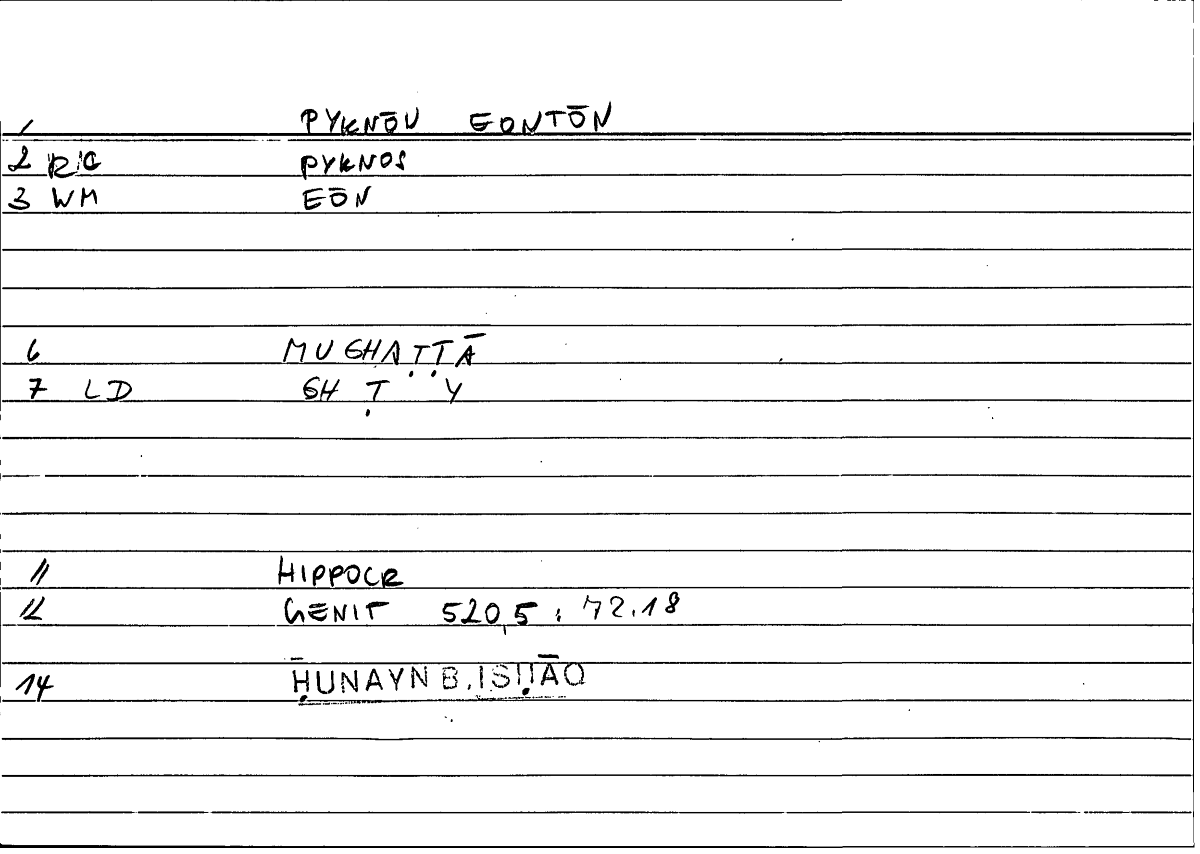 1 PYKNŌN EONTŌN
2 R/C PYKNOS
3 WM EŌN
6 MUGHAṬṬĀ
7 LD GH Ṭ Y
11 HIPPOCR
12 GENIT 520,5 : 72.18
14 ḤUNAYN B. ISḤĀQ